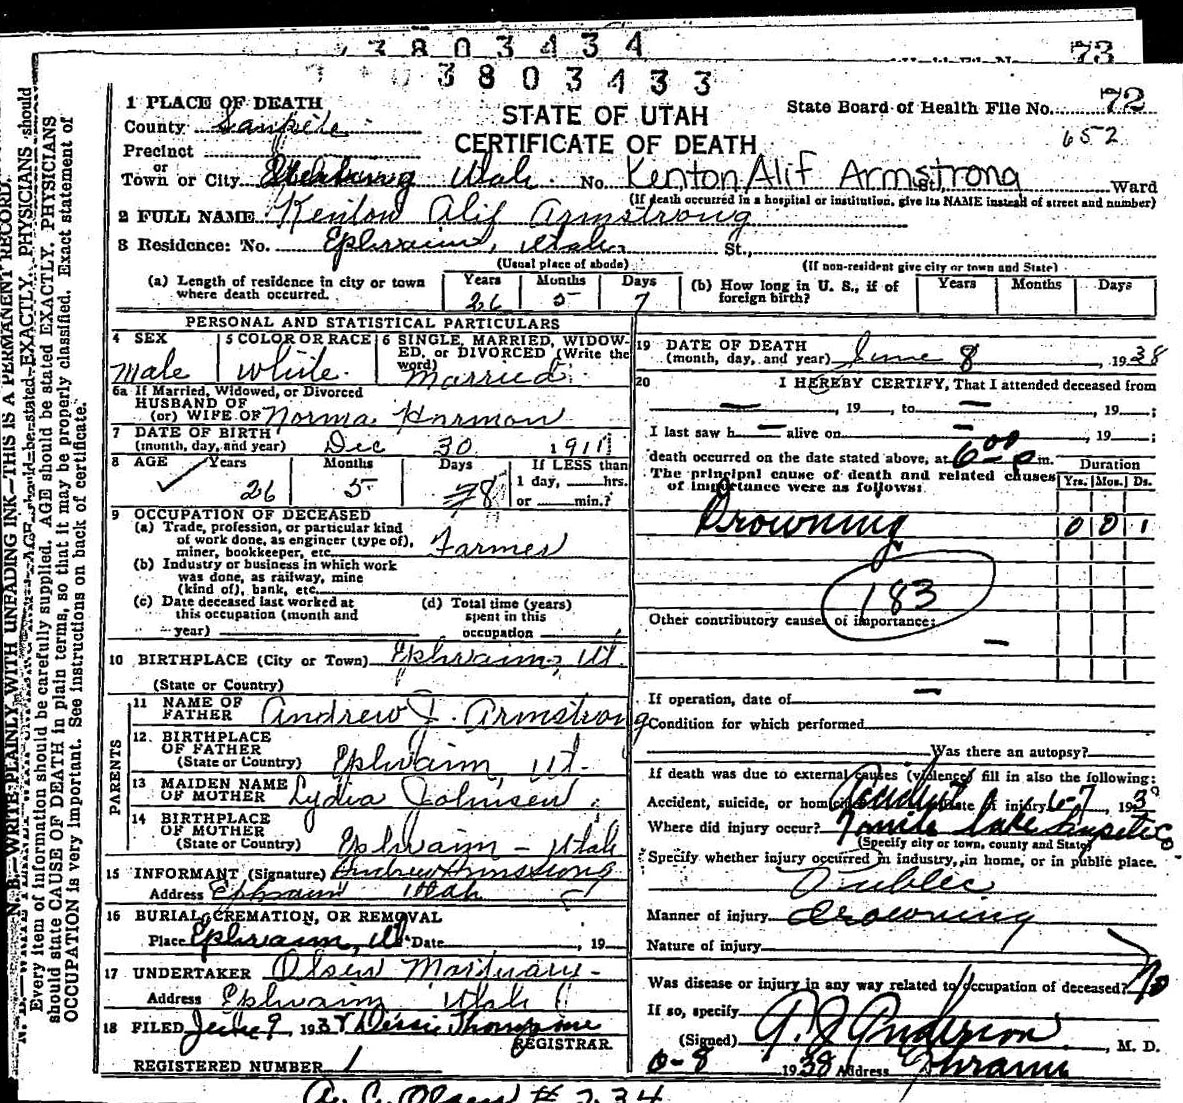 3803434
73
3803433
1 PLACE OF DEATH
STATE OF UTAH
CERTIFICATE OF DEATH
State Board of Health File No. 72
652
County Sanpete
Precinct
or
Town or City Utah. No. Kenton Alif Armstrong St., Ward
(If death occurred in a hospital or institution, give its NAME instead of street and number)
2 FULL NAME Kenton Alif Armstrong
3 Residence: No. Ephraim, Utah. St.,
(Usual place of abode) (If non-resident give city or town and State)
(a) Length of residence in city or town where death occurred. Years 26 Months 5 Days 7 (b) How long in U. S., if of foreign birth? Years Months Days
PERSONAL AND STATISTICAL PARTICULARS
4 SEX Male
5 COLOR OR RACE White.
6 SINGLE, MARRIED, WIDOWED, or DIVORCED (Write the word) Married
6a If Married, Widowed, or Divorced
HUSBAND OF
(or) WIFE OF Norma Harmon
7 DATE OF BIRTH
(month, day, and year) Dec 30 1911
8 AGE Years 26 Months 5 Days 8 If LESS than
1 day, hrs.
or min.?
9 OCCUPATION OF DECEASED
(a) Trade, profession, or particular kind
of work done, as engineer (type of),
miner, bookkeeper, etc. Farmer
(b) Industry or business in which work
was done, as railway, mine
(kind of), bank, etc.
(c) Date deceased last worked at
this occupation (month and
year)
(d) Total time (years)
spent in this
occupation
10 BIRTHPLACE (City or Town) Ephraim, Ut.
(State or Country)
PARENTS
11 NAME OF
FATHER Andrew J. Armstrong
12. BIRTHPLACE
OF FATHER
(State or Country) Ephraim, Ut.
13 MAIDEN NAME
OF MOTHER Lydia Johnsen
14 BIRTHPLACE
OF MOTHER
(State or Country) Ephraim - Utah
15 INFORMANT (Signature) Andrew Armstrong
Address Ephraim Utah
16 BURIAL, CREMATION, OR REMOVAL
Place Ephraim, Ut Date , 19
17 UNDERTAKER Olsen Mortuary -
Address Ephraim Utah
18 FILED June 9 1938
REGISTRAR
REGISTERED NUMBER 1
19 DATE OF DEATH
(month, day, and year) June 8, 1938
20 I HEREBY CERTIFY, That I attended deceased from
— , 19 , to — , 19 ;
I last saw h — alive on — , 19 ;
death occurred on the date stated above, at 6 00 p m.
The principal cause of death and related causes
of importance were as follows:
Duration
Yrs. Mos. Ds.
Drowning 0 0 1
183
Other contributory causes of importance:
—
If operation, date of —
Condition for which performed
Was there an autopsy?
If death was due to external causes (violence) fill in also the following:
Accident, suicide, or homicide Accident Date of injury 6-7 193
Where did injury occur? Lake
(Specify city or town, county and State)
Specify whether injury occurred in industry, in home, or in public place.
Public
Manner of injury drowning
Nature of injury
Was disease or injury in any way related to occupation of deceased? No
If so, specify
(Signed) Anderson, M. D.
6-8 1938 Address Ephraim
A. C. Olsen # 234
N. B.—WRITE PLAINLY WITH UNFADING INK—THIS IS A PERMANENT RECORD.
Every item of information should be carefully supplied. AGE should be stated EXACTLY. PHYSICIANS
should state CAUSE OF DEATH in plain terms, so that it may be properly classified. Exact statement of
OCCUPATION is very important. See instructions on back of certificate.